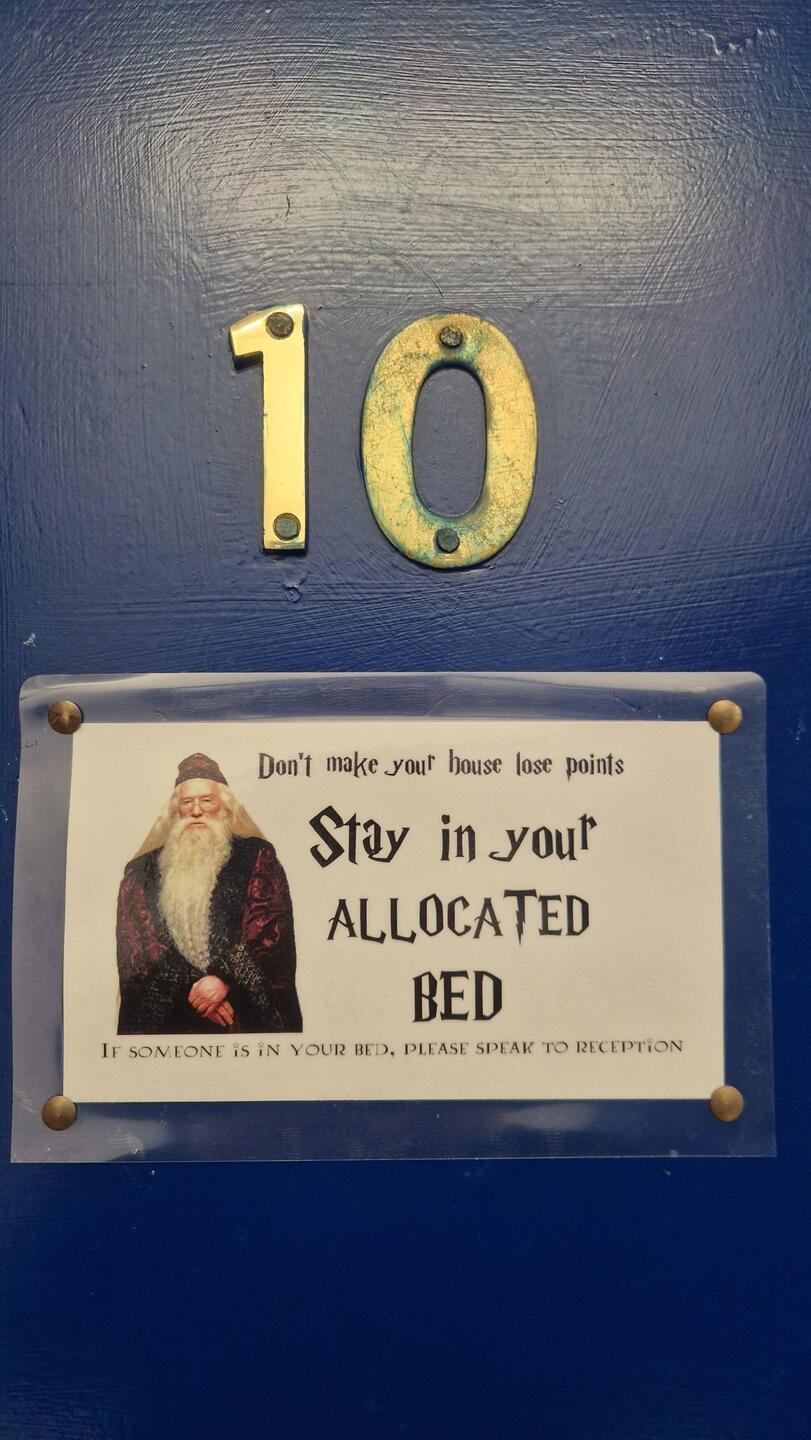 10
Don't make your house lose points
Stay in your
ALLOCATED
BED
IF SOMEONE IS IN YOUR BED, PLEASE SPEAK TO RECEPTION